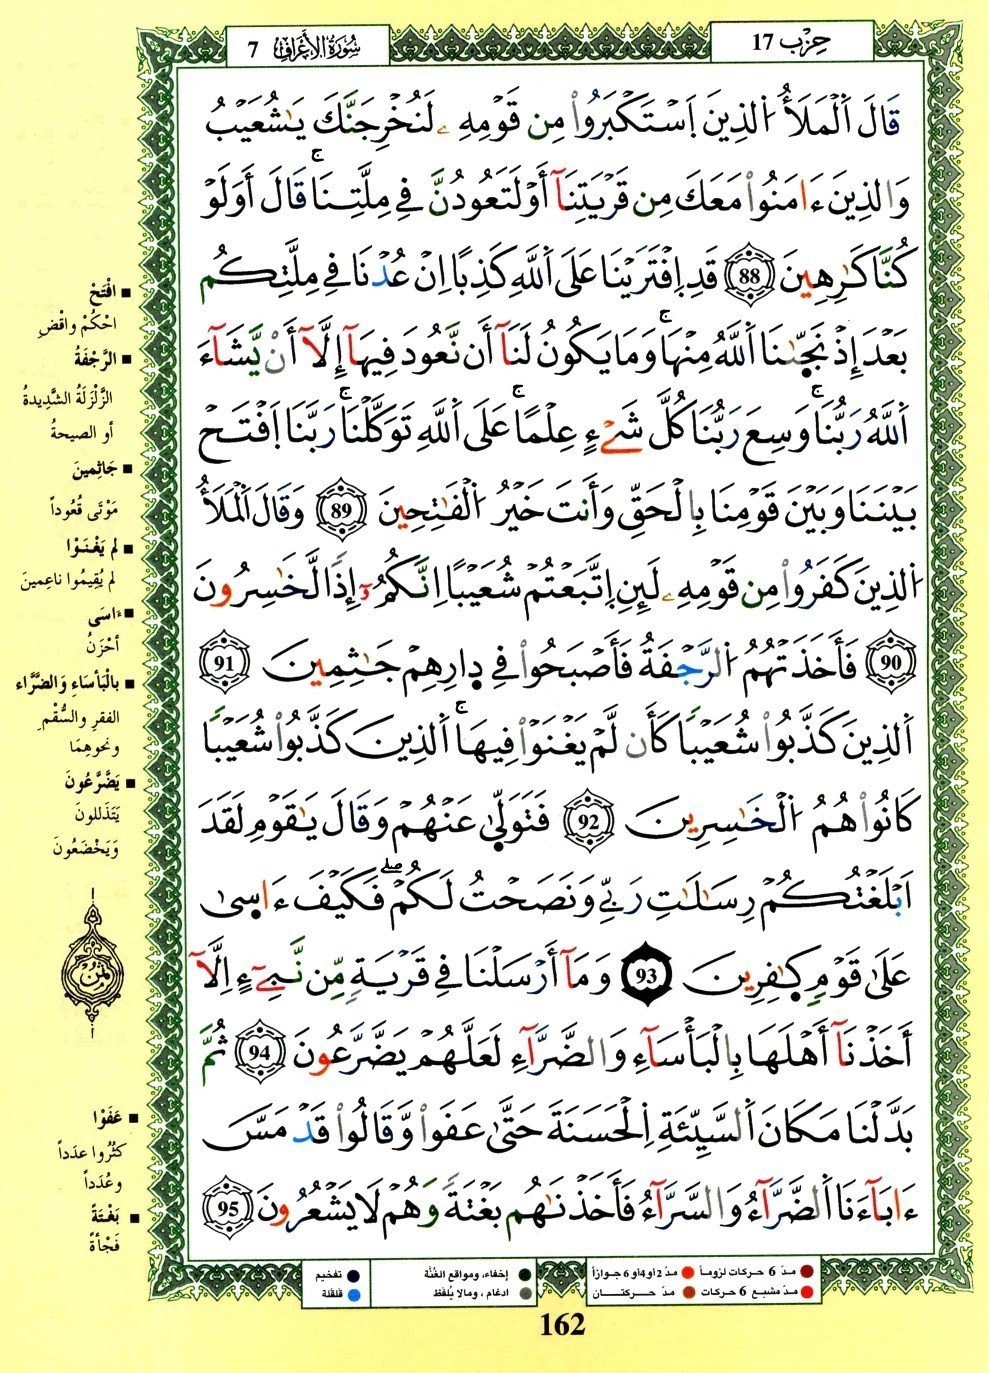 حِزْب 17
سُورَةُ الأَعْرَافِ 7
قَالَ اَ۬لْمَلَأُ اُ۬لذِينَ اَ۪سْتَكْبَرُواْ مِن قَوْمِهِۦ لَنُخْرِجَنَّكَ يَٰشُعَيْبُ
وَالذِينَ ءَامَنُواْ مَعَكَ مِن قَرْيَتِنَآ أَوْ لَتَعُودُنَّ فِے مِلَّتِنَاۚ قَالَ أَوَلَوْ
كُنَّا كَٰرِهِينَ 88 قَدِ اِ۪فْتَرَيْنَا عَلَى اَ۬للَّهِ كَذِباً اِنْ عُدْنَا فِے مِلَّتِكُم
بَعْدَ إِذْ نَجّ۪يٰنَا اَ۬للَّهُ مِنْهَاۚ وَمَا يَكُونُ لَنَآ أَن نَّعُودَ فِيهَآ إِلَّآ أَنْ يَّشَآءَ
اَ۬للَّهُ رَبُّنَاۚ وَسِعَ رَبُّنَا كُلَّ شَےْءٍ عِلْماًۚ عَلَى اَ۬للَّهِ تَوَكَّلْنَاۚ رَبَّنَا اَ۪فْتَحْ
بَيْنَنَا وَبَيْنَ قَوْمِنَا بِالْحَقِّ وَأَنتَ خَيْرُ اُ۬لْفَٰتِحِينَ 89 وَقَالَ اَ۬لْمَلَأُ
اُ۬لذِينَ كَفَرُواْ مِن قَوْمِهِۦ لَئِنِ اِ۪تَّبَعْتُمْ شُعَيْباً اِنَّكُمُۥٓ إِذاً لَّخَٰسِرُونَ
90 فَأَخَذَتْهُمُ اُ۬لرَّجْفَةُ فَأَصْبَحُواْ فِے د۪ارِهِمْ جَٰثِمِينَ 91
اَ۬لذِينَ كَذَّبُواْ شُعَيْباً كَأَن لَّمْ يَغْنَوْاْ فِيهَاۚ اَ۬لذِينَ كَذَّبُواْ شُعَيْباً
كَانُواْ هُمُ اُ۬لْخَٰسِرِينَ 92 فَتَوَلّ۪يٰ عَنْهُمْ وَقَالَ يَٰقَوْمِ لَقَدَ
اَبْلَغْتُكُمْ رِسَٰلَٰتِ رَبِّے وَنَصَحْتُ لَكُمْۖ فَكَيْفَ ءَاس۪يٰ
عَلَىٰ قَوْمٍ كٰ۪فِرِينَ 93 وَمَآ أَرْسَلْنَا فِے قَرْيَةٍ مِّن نَّبِےٓءٍ اِلَّآ
أَخَذْنَآ أَهْلَهَا بِالْبَأْسَآءِ وَالضَّرَّآءِ لَعَلَّهُمْ يَضَّرَّعُونَ 94 ثُمَّ
بَدَّلْنَا مَكَانَ اَ۬لسَّيِّئَةِ اِ۬لْحَسَنَةَ حَتَّىٰ عَفَواْ وَّقَالُواْ قَدْ مَسَّ
ءَابَآءَنَا اَ۬لضَّرَّآءُ وَالسَّرَّآءُ فَأَخَذْنَٰهُم بَغْتَةً وَهُمْ لَا يَشْعُرُونَ 95
■ افْتَحْ
احْكُمْ واقْضِ
■ الرَّجْفَةُ
الزَّلْزَلَةُ الشَّدِيدةُ
أو الصيحةُ
■ جَاثِمِينَ
مَوْتَى قُعُوداً
■ لم يَغْنَوْا
لم يُقِيمُوا ناعِمينَ
■ ءاسَى
أحْزَنُ
■ بالْبَأسَاءِ وَالضَّرَّاءِ
الفقرِ والسُّقْمِ
ونحوِهِمَا
■ يَضَّرَّعُونَ
يَتَذَللونَ
وَيَخْضَعُونَ
ثُمُن
■ عَفَوْا
كثُرُوا عدَداً
وعُدَداً
■ بَغْتَةً
فَجْأةً
● مدّ 6 حركات لزوماً ● مدّ 2 أو 4 أو 6 جوازاً
● مدّ مشبع 6 حركات ● مدّ حركتان
● إخفاء، ومواقع الغُنَّة
● ادغام، ومالا يُلفَظ
● تفخيم
● قلقلة
162